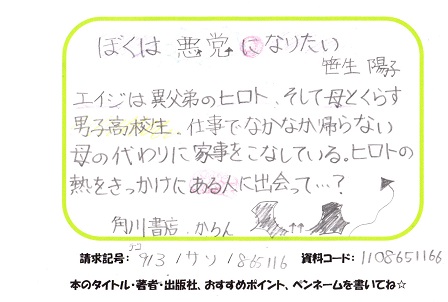 ぼくは悪党になりたい
笹生 陽子
エイジは異父弟のヒロト、そして母とくらす
男子高校生、仕事でなかなか帰らない
母の代わりに家事をこなしている。ヒロトの
熱をきっかけにある人に出会って…？
角川書店 かろん
請求記号：913 / サソ / 865116 資料コード：1108651166
本のタイトル・著者・出版社、おすすめポイント、ペンネームを書いてね☆